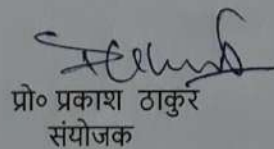 प्रो० प्रकाश ठाकुर
संयोजक